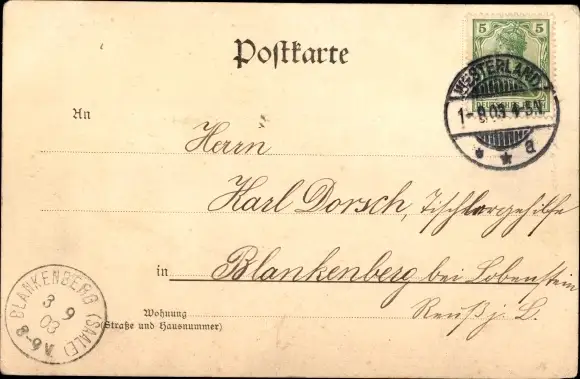 Postkarte
5 5
DEUTSCHES REICH
WESTERLAND
1-9 03 4-5N
a
An
Herrn
Karl Dorsch, Tischlergehilfe
in Blankenberg bei Lobenstein
Reuß j. L.
Wohnung
(Straße und Hausnummer)
BLANKENBERG (SAALE)
3 9
03
8-9 V.